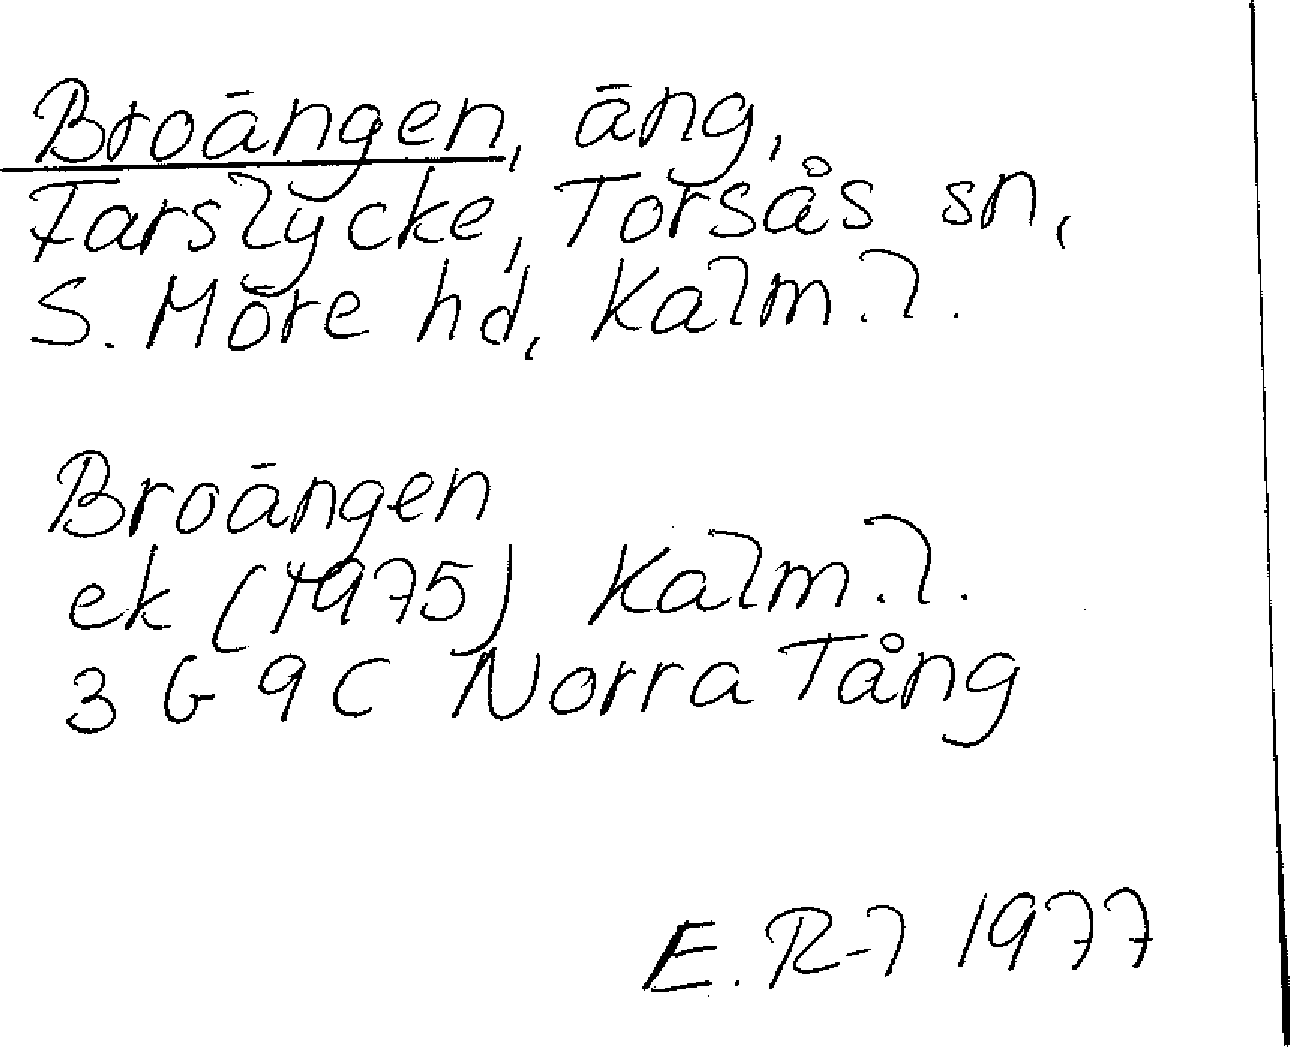 Broängen, äng,
Farslycke, Torsås sn,
S. Möre hd, Kalm. l.
Broängen
ek (1975) Kalm. l.
3 G 9 C Norra Tång
E. R-l 1977